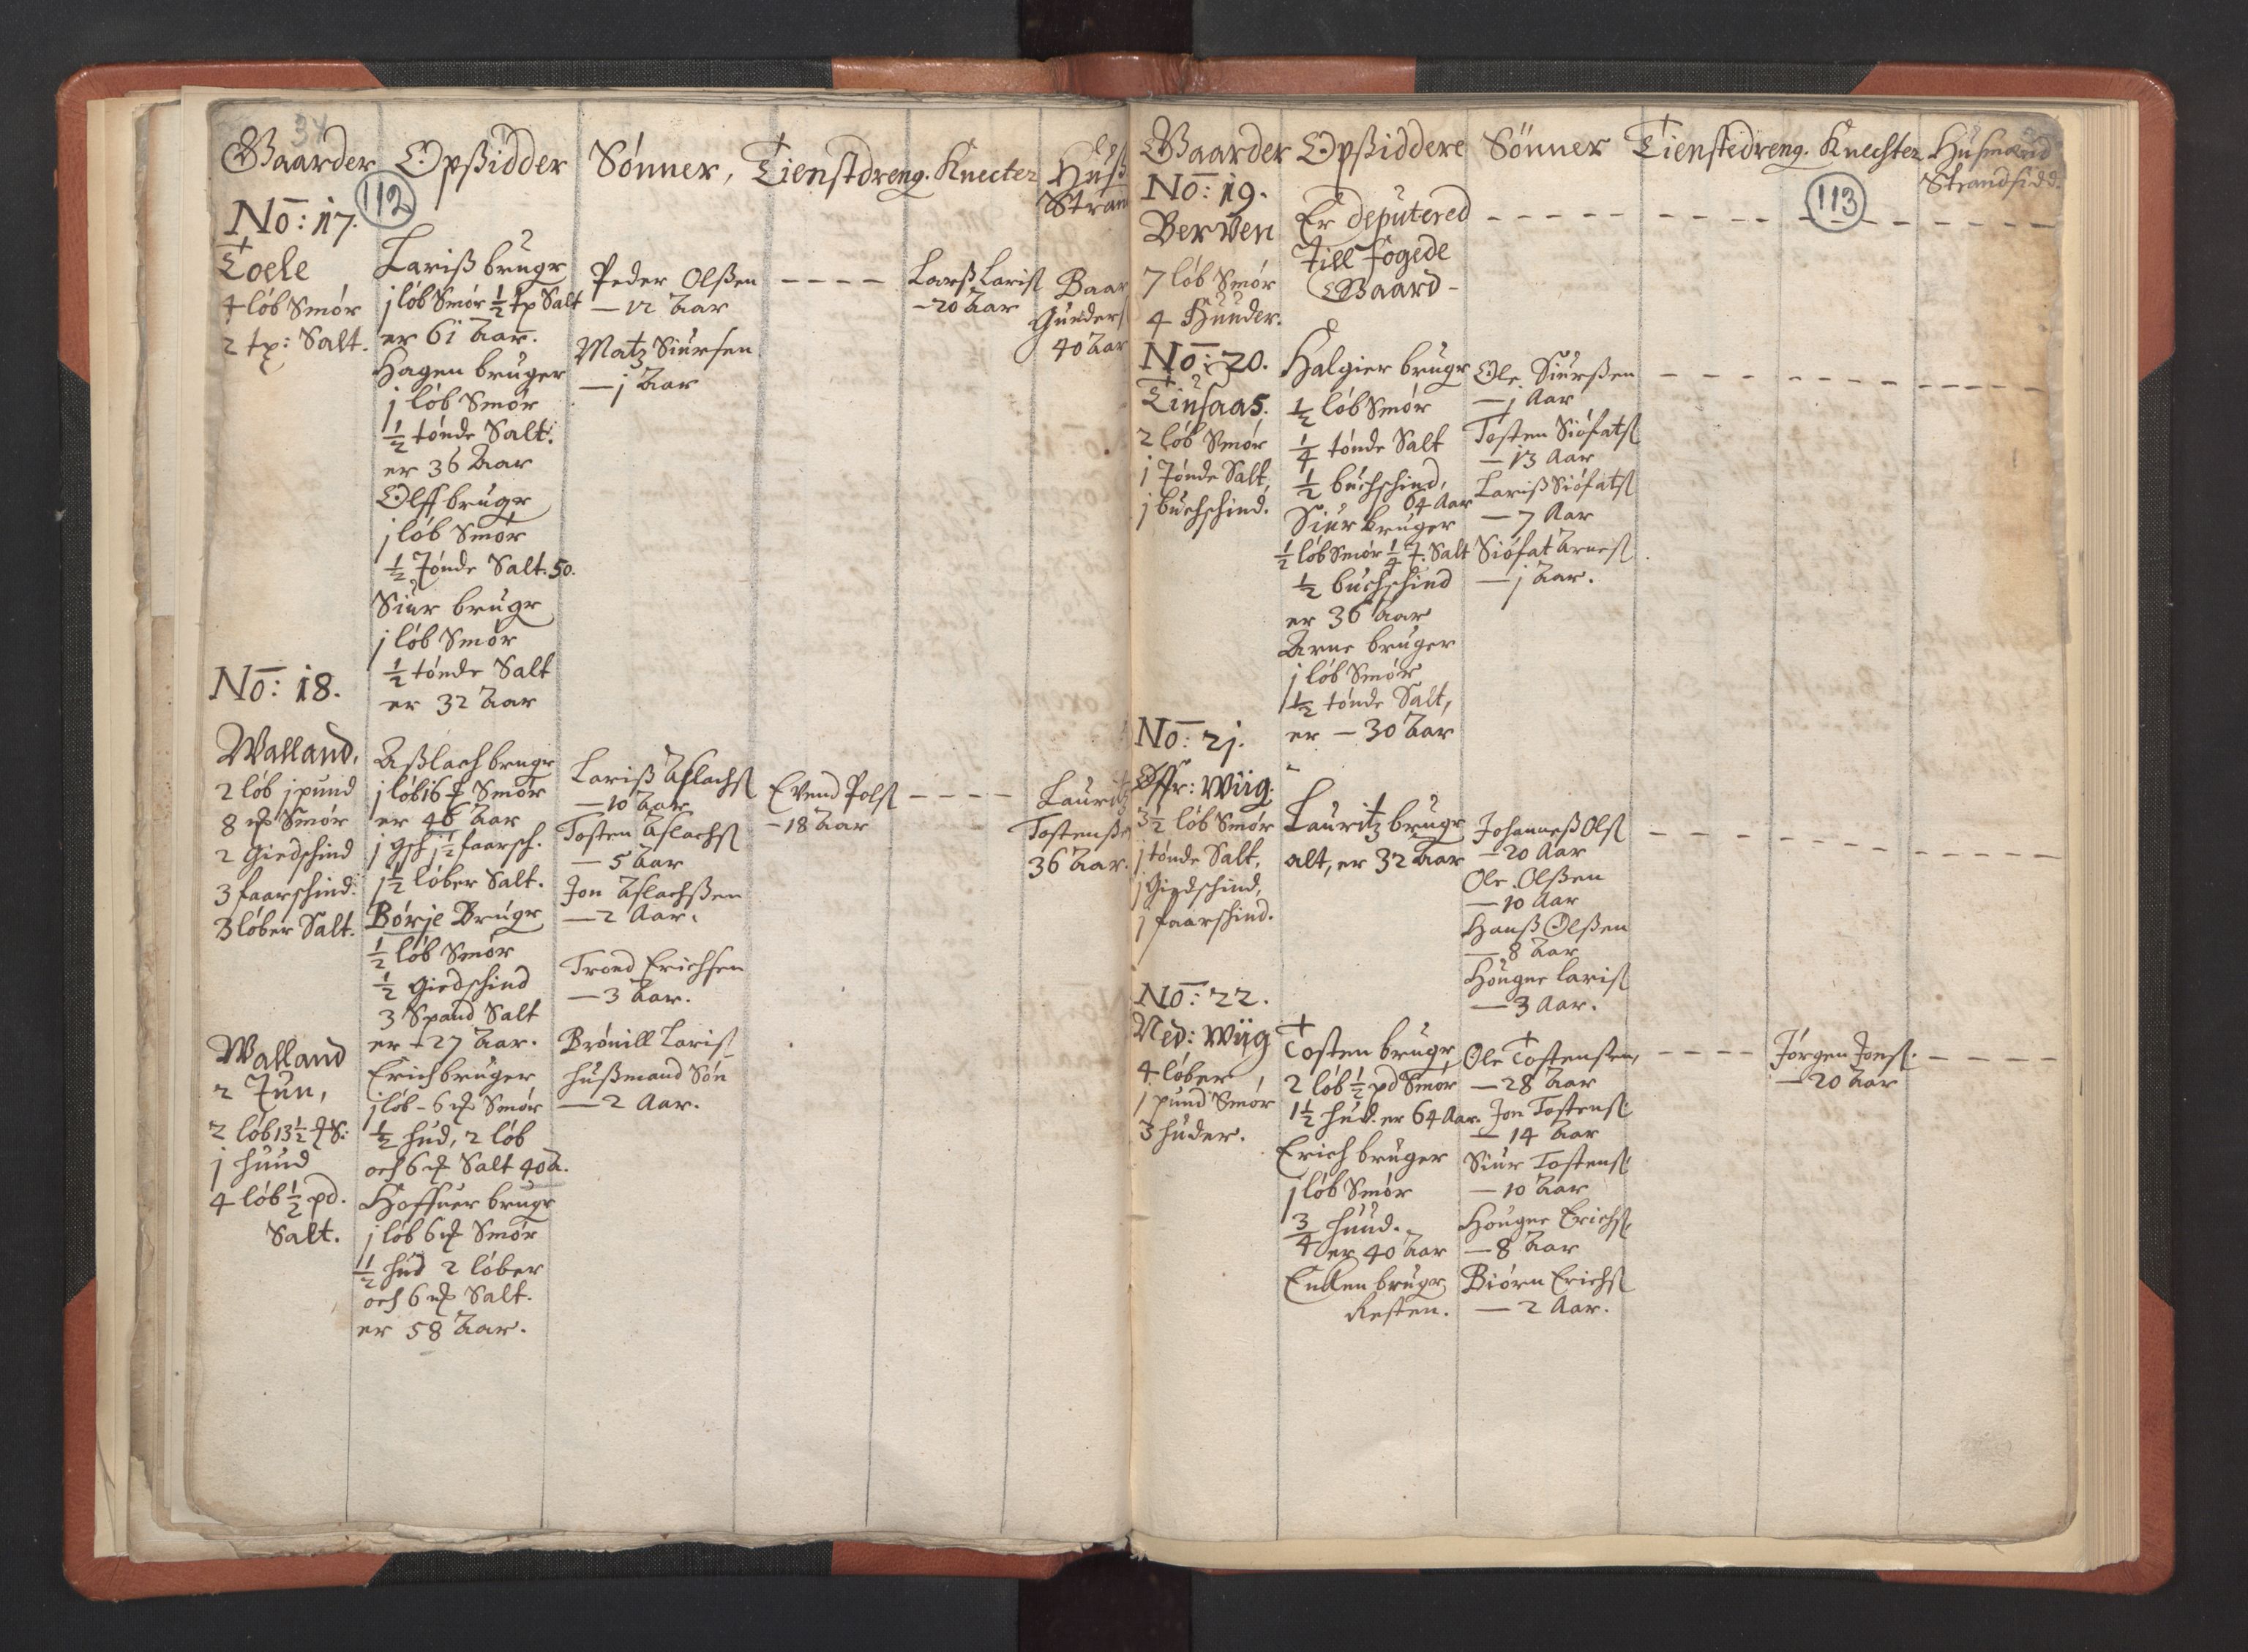 34
Gaarder
Opsidder
Sønner,
Tienstdreng.
Knecter
Huß
Stran
112
No: 17.
Toele
4 løb Smør
2 tp: Salt.
Lariß brugr
j løb Smør ½ tp Salt
er 61 Aar.
Hagen bruger
j løb Smør
½ tønde Salt.
er 36 Aar
Olff brugr
j løb Smør
½ Tønde Salt. 50.
Siur brugr
j løb Smør
½ tønde Salt
er 32 Aar
Peder Olßen
— 12 Aar
Matz Siursen
— j Aar
Larß Lariß
- 20 Aar
Baar
Gunders
40 Aar
No: 18.
Walland,
2 løb j pund
8 ℔ Smør
2 Giedschind
3 faarschind.
3 løber Salt.
Aßlach brugr
j løb 16 ℔ Smør
er 46 Aar
j gsch 1½ faarsch.
1½ løber Salt.
Børje Brugr
½ løb Smør
½ Giedschind
3 Spand Salt
er - 27 Aar.
Lariß Aslachs
— 10 Aar
Tosten Aslachs
— 5 Aar
Jon Aslachßen
— 2 Aar.
Trond Erichsen
— 3 Aar.
Evend Pols
- 18 Aar
Lauritz
Tostenße
36 Aar.
Walland
2 Tun,
2 løb 13½ ℔ S:
j huud
4 løb ½ pd.
Salt.
Erich bruger
j løb - 6 ℔ Smør
½ hud, 2 løb
och 6 ℔ Salt 40 A.
Hoffuer brugr
j løb 6 ℔ Smør
½ hud 2 løber
och 6 ℔ Salt.
er 58 Aar.
Brønill Laris
hußmand Søn
— 2 Aar.
Gaarder
Opßiddere
Sønner
Tienstedreng.
Knechter
Husmænd
Strandsidd.
113
No: 19.
Berven
7 løb Smør
4 Huuder.
Er deputered
till fogede
Gaard -
No: 20.
Tinsaas.
2 løb Smør
j Tønde Salt,
j buchschind.
Halgier brugr
½ løb Smør
¼ tønde Salt
½ buchschind,
64 Aar
Siur bruger
½ løb Smør ¼ T. Salt
½ buchschind
er 36 Aar
Arne bruger
j løb Smør
½ tønde Salt,
er — 30 Aar
Ole Siurßen
— j Aar
Tosten Siøfats
— 13 Aar
Lariß Siøfats
— 7 Aar
Siøfat Arnes
— j Aar.
No: 2j.
Øffr: Wiig.
3½ løb Smør
j tønde Salt,
j Giedschind,
j faarschind.
Lauritz brugr
alt, er 32 Aar
Johanneß Ols
— 20 Aar
Ole Olßen
— 10 Aar
Hanß Olßen
— 8 Aar
Hougne Laris
— 3 Aar.
No: 22.
Ned: Wiig
4 løber
1 pund Smør
3 huder.
Tosten brugr
2 løb ½ pd Smør
1½ hud. er 64 Aar.
Erich bruger
j løb Smør
¾ huud.
er 40 Aar
Enken brugr
Resten.
Ole Tostensen,
— 28 Aar
Jon Tostens
— 14 Aar
Siur Tostens
— 10 Aar
Hougne Erichs
— 8 Aar
Biørn Erichs
— 2 Aar.
Jørgen Jons.
— 20 Aar